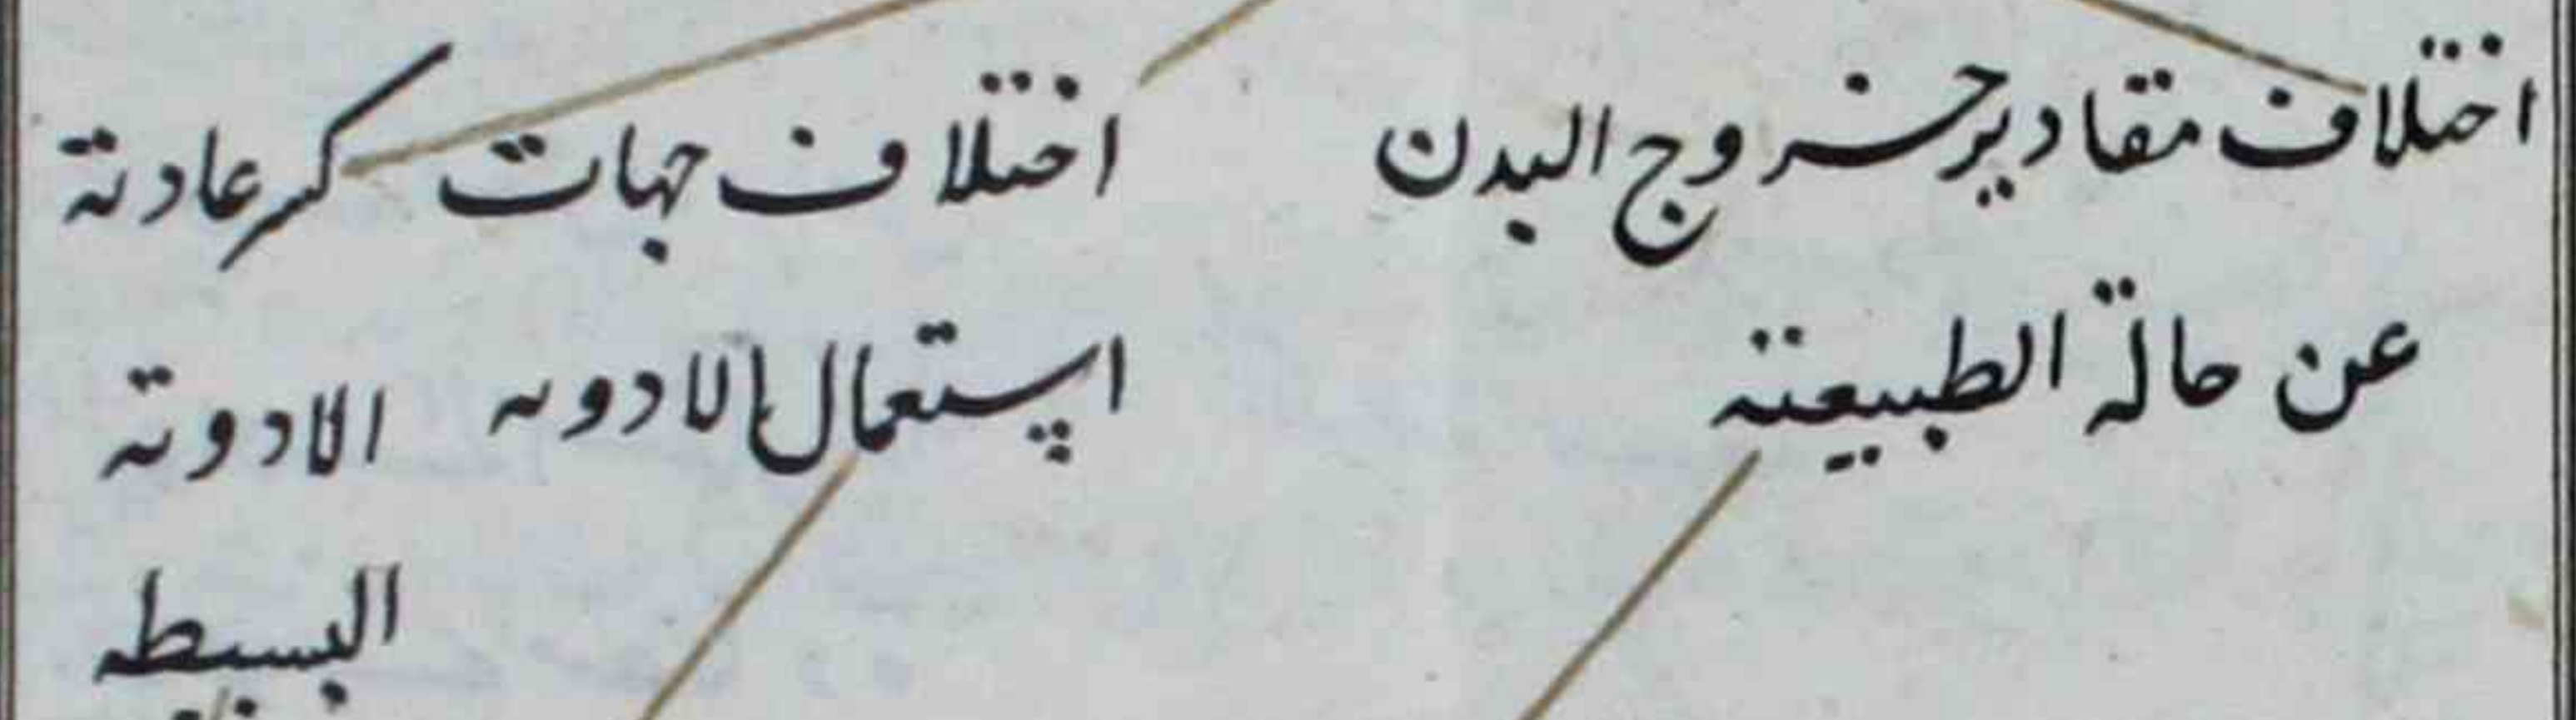 اختلاف مقادير خروج البدن
عن حالة الطبيعية
اختلاف جهات
استعمال الادويه
عادته
الادوية
البسيطه